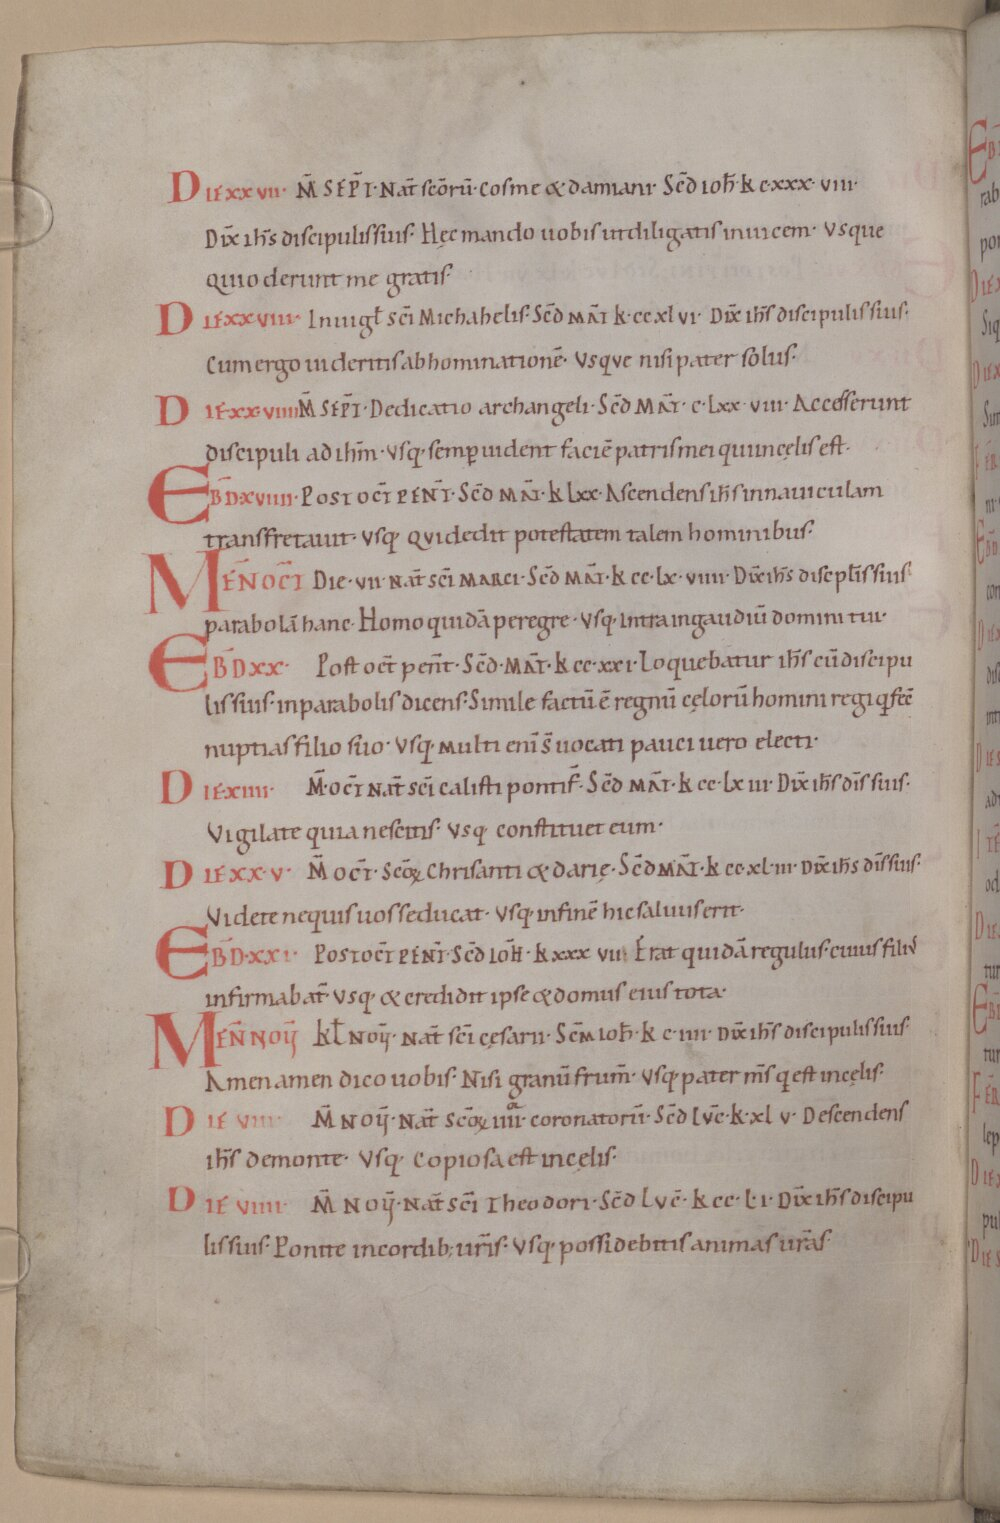 DIE XXVII· M̄ SEPT̄· Nat̄ sc̄orū· cosme & damiani· Sc̄d ioh̄· k c·xxx· viii·
Dix̄ ih̄s discipulis suis· Hęc mando uobis ut diligatis inuicem· Vsque
quio derunt me gratis·
DIE XXVIII· In uigł sc̄i Michahelis· Sc̄d MAT̄· k· cc xl vi· Dix̄ ih̄s discipulis suis·
Cum ergo uideritis abhominationē· Vsque nisi pater solus·
DIE·XX·VIIII M̄ SEPT̄· Dedicatio archangeli· Sc̄d MAT̄· c· lxx· viii· Accesserunt
discipuli ad ih̄m· Vsq· semp uident faciē patris mei qui in cęlis est·
EBD̄·XVIIII· POST OCT̄ PENT̄· Sc̄d MAT̄· k lxx· Ascendens ih̄s in nauiculam
transfretauit· Vsq· Qui dedit potestatem talem hominibus·
MEN̄ OCT̄ Die· vii· nat̄ sc̄i MARCI· Sc̄d MAT̄· k cc· lx· viiii· Dix̄ ih̄s disc plīs suis
parabolā hanc· Homo quidā peregre· Vsq· intra in gaudiū domini tui·
EBD̄ XX· Post oct̄ pent̄· Sc̄d· MAT̄· k cc· xxi· Loquebatur ih̄s cū discipu
lis suis· in parabolis dicens· Simile factū ē regnū cęlorū homini regi q fēc
nuptias filio suo· Vsq· multi enī s̄ uocati pauci uero electi·
DIE XIIII· M̄· OCT̄ nat̄ sc̄i calisti pontif̄· Sc̄d MAT̄· k cc· lx iii· Dix̄ ih̄s dīs suis·
Vigilate quia nescitis· Vsq· constituet eum·
DIE XX·V· M̄ OCT̄· Scōꝝ Chrisanti & darię· Sc̄d MAT̄· k cc· xl· iii· Dix̄ ih̄s dīs suis·
Videte nequis uos seducat· Vsq· infinē hic saluus erit·
EBD̄·XXI· POST OCT̄ PENT̄· Sc̄d IOH̄· k xxx vii· Erat quidā regulus· cuius filiˀ
infirmabat̄· Vsq· & credidit ipse & domus eius tota·
MEN̄ NOṼ KL̄ NOṼ· nat̄ sc̄i cęsarii· Sc̄m ioh̄· k c· iiii· Dix̄ ih̄s discipulis suis
Amen amen dico uobis· Nisi granū frum̄· Vsq· pater m̄s q· est in cęlis·
DIE VIII· M̄ NOṼ· Nat̄ scōꝝ iiiior coronatorū· Sc̄d lvc̄· k· xl v· Descendens
ih̄s de monte· Vsq· copiosa est in cęlis·
DIE VIIII· M̄ NOṼ· Nat̄ sc̄i Theodori· Sc̄d lvc̄· k cc· l· i· Dix̄ ih̄s discipu
lis suis· Ponite in cordib; ur̄is· Vsq· possidebitis animas ur̄as·